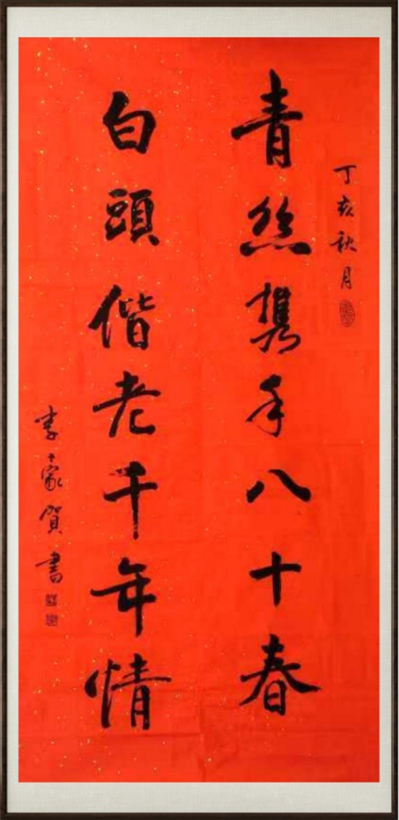 丁亥秋月
青丝携手八十春
白頭偕老千年情
李家贺書